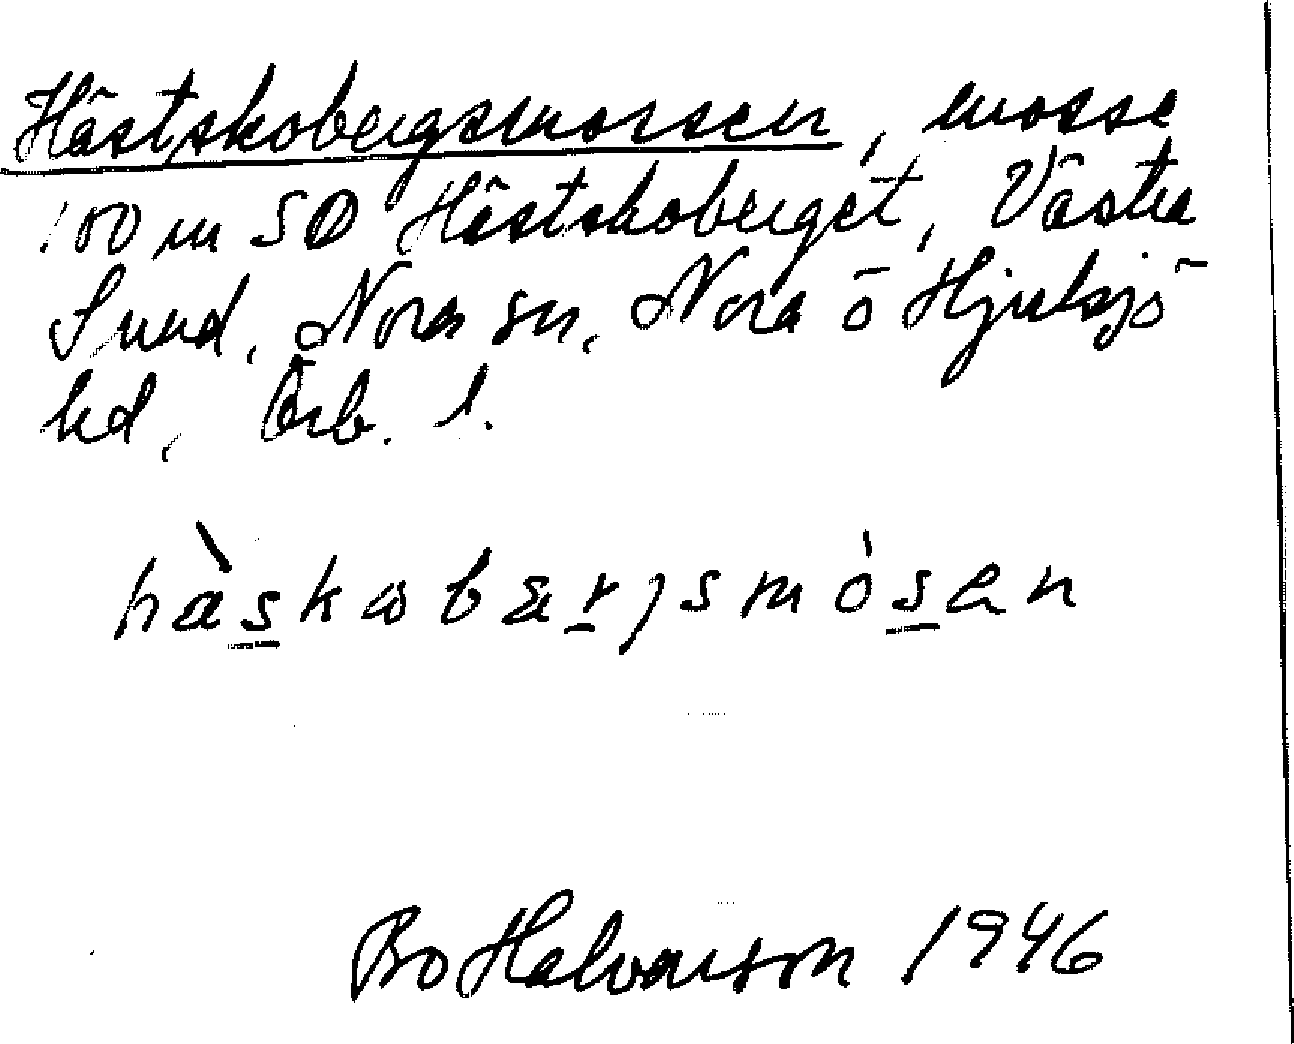 Hästskobergsmossen, mosse
100 m SO Hästskoberget, Västra
Sund, Nora sn, Nora o Hjulsjö
hd, Örb. l.
hàskobærjsmósen
Bo Halvarson 1946